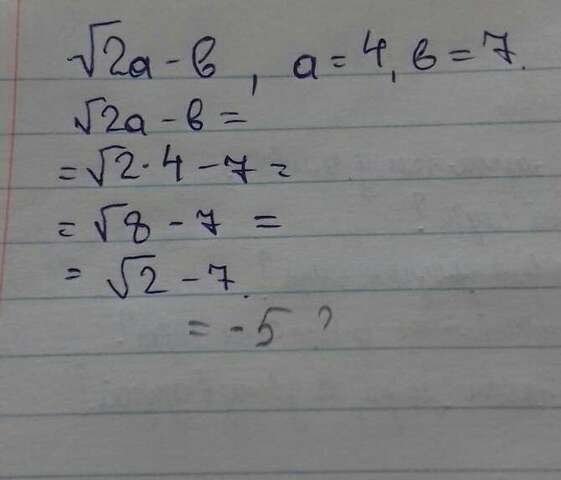 √2a - в, a = 4, в = 7.
√2a - в =
= √2·4 - 7 =
= √8 - 7 =
= √2 - 7.
= -5 ?